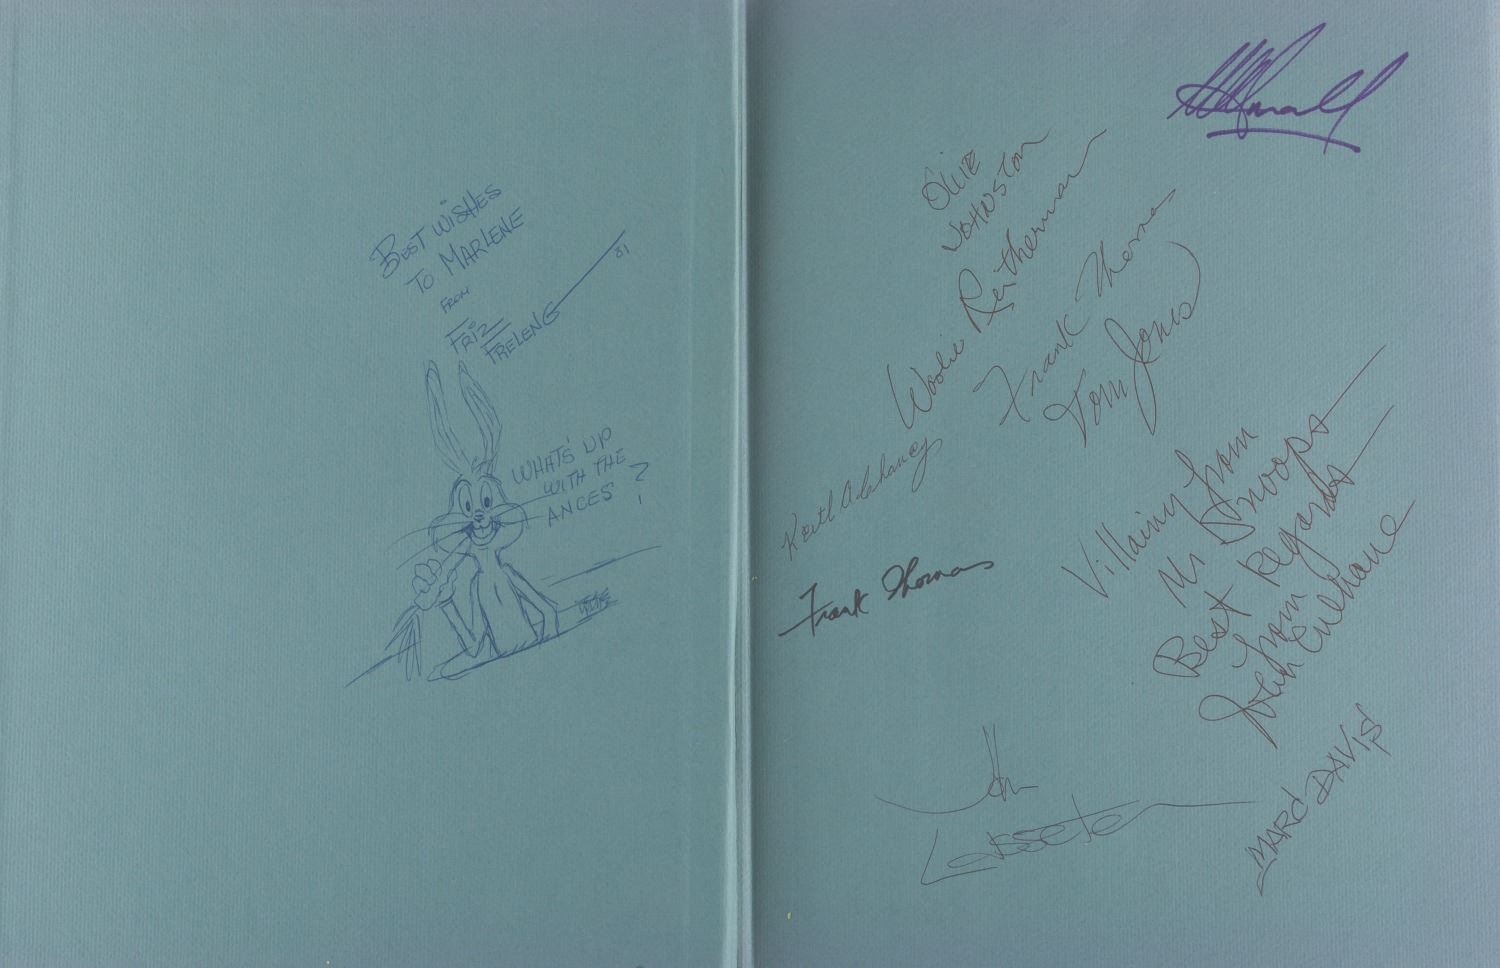 BEST WISHES
TO MARLENE
FROM
FRIZ
FRELENG
81
WHAT'S UP
WITH THE
ANCES?
OLLIE
JOHNSTON
Woolie Reitherman
Frank Thomas
Tom Jones
Frank Thomas
Villainy from
Mr Snoops
Best Regards
from
John Culhane
John
Lasseter
MARC DAVIS